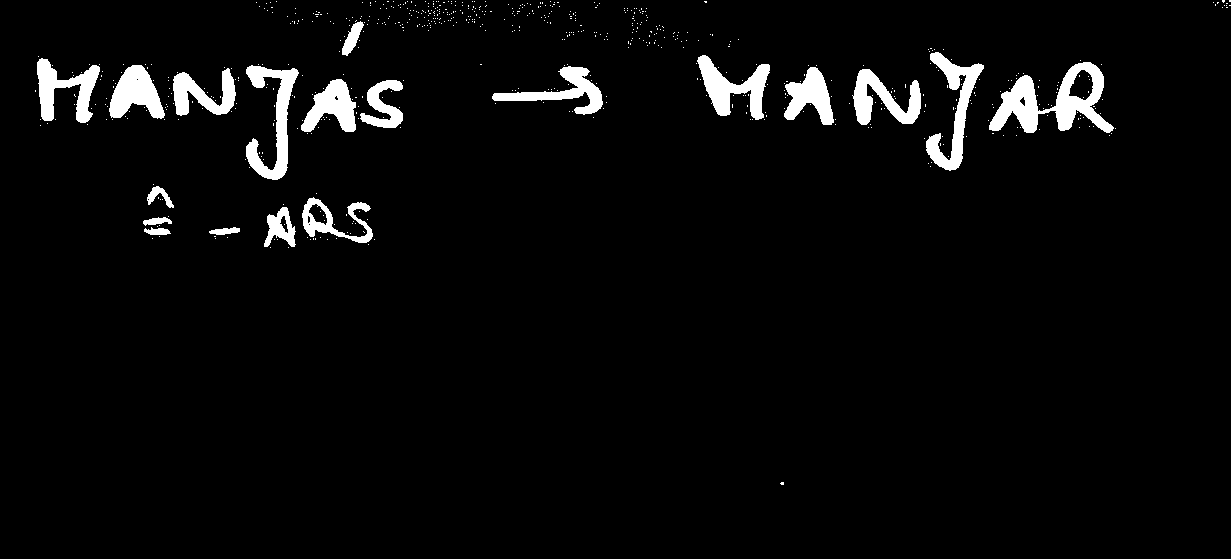 MANJÁS → MANJAR
≙ - ARS